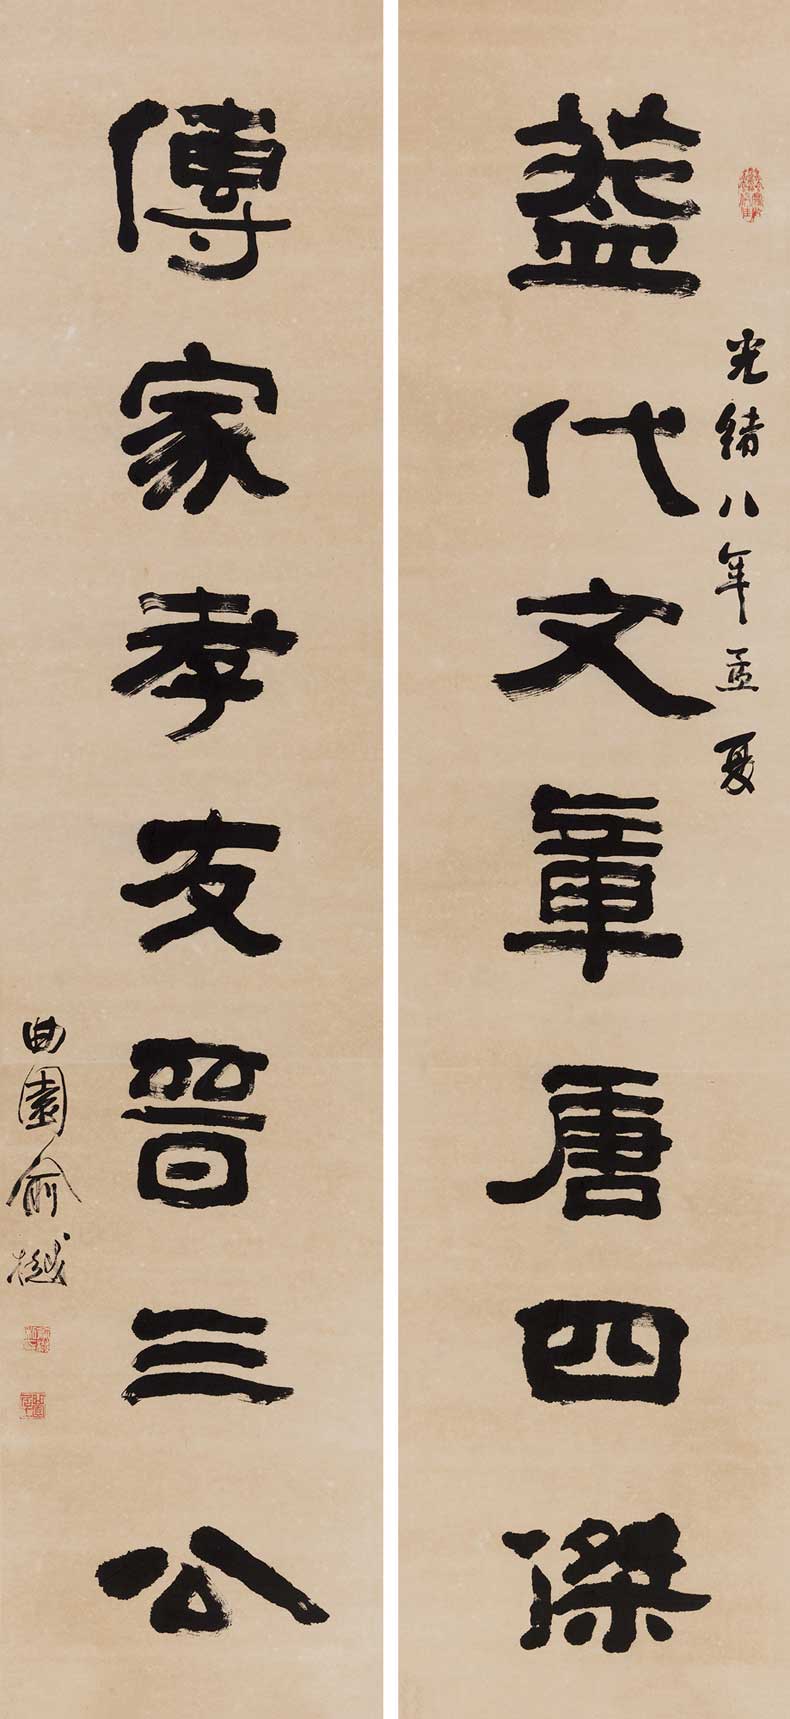 光緒八年孟夏
蓋代文章唐四傑
傳家孝友晉三公
曲園俞樾